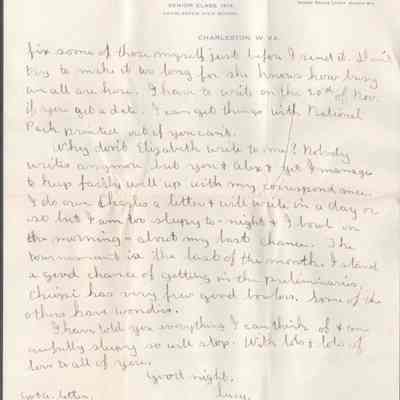 SENIOR CLASS 1914
CHARLESTON HIGH SCHOOL
CHARLESTON W. VA.
fix some of those myself just before I send it. Don't
try to make it too long for she knows how busy
we all are here. I have to write on the 20th of Nov.
if you get a date. I can get things with National
Park printed out if you can't.
Why don't Elizabeth write to me? Nobody
writes anymore but you & Alex & yet I manage
to keep fairly well up with my correspondence.
I do owe Charles a letter & will write in a day or
so but I am too sleepy to-night & I bowl in
the morning - about my last chance. The
tournament is the last of the month. I stand
a good chance of getting in the preliminaries.
has very few good bowlers. Some of the
others have wonders.
I have told you everything I can think of & am
awfully sleepy so will stop. With lots & lots of
love to all of you.
Good night.
Lucy.
letter.